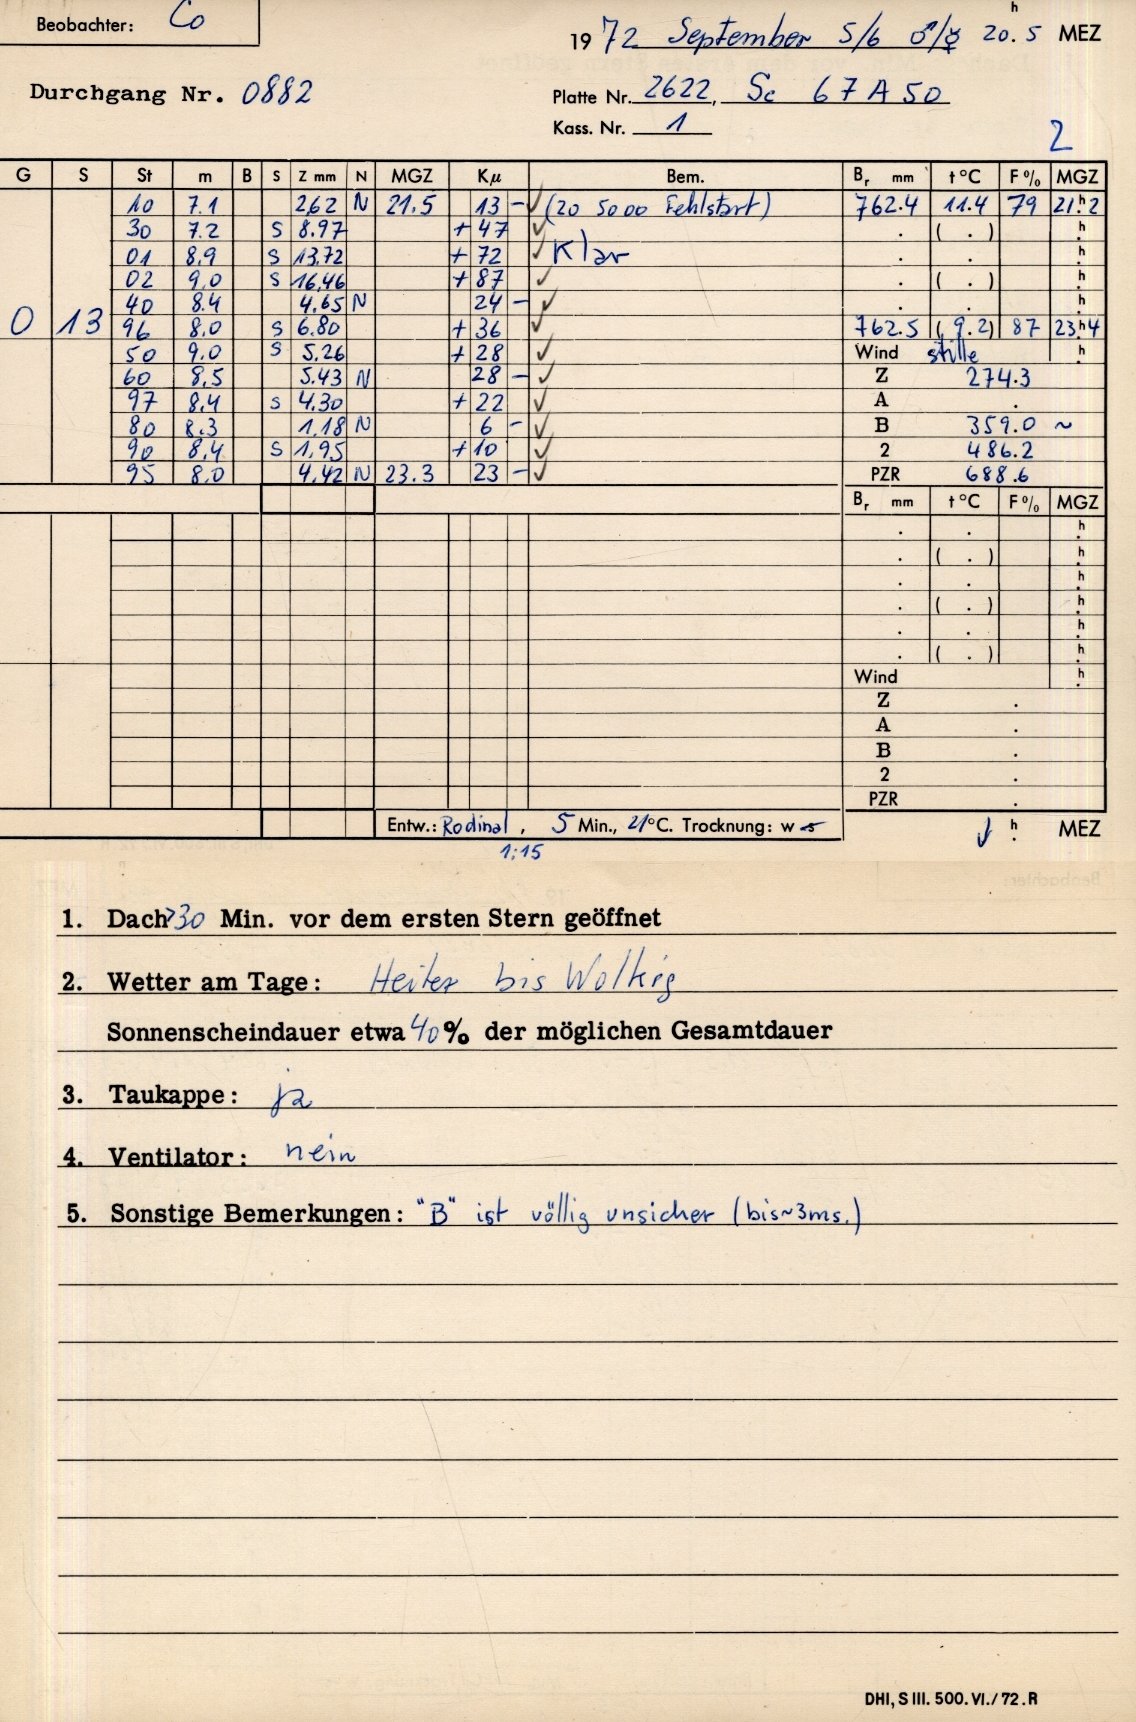 Beobachter: Co
1972 September 5/6 ♂/☿ 20.5 h MEZ
Durchgang Nr. 0882
Platte Nr. 2622, Sc 67 A 50
Kass. Nr. 1
2
G S St m B S Z mm N MGZ Kµ Bem. Br mm t °C F % MGZ
10 7.1 2.62 N 21.5 13 - ✓ (20 5000 Fehlstart) 762.4 11.4 79 21h2
30 7.2 S 8.97 + 47 ✓ . ( . ) h
01 8.9 S 13.72 + 72 ✓ Klar . . h
02 9.0 S 16.46 + 87 ✓ . ( . ) h
40 8.4 4.65 N 24 - ✓ . . h
0 13 96 8.0 S 6.80 + 36 ✓ 762.5 (9.2) 87 23h4
50 9.0 S 5.26 + 28 ✓ Wind stille h
60 8.5 5.43 N 28 - ✓ Z 274.3
97 8.4 S 4.30 + 22 ✓ A .
80 8.3 1.18 N 6 - ✓ B 359.0 ~
90 8.4 S 1.95 + 10 ✓ 2 486.2
95 8.0 4.42 N 23.3 23 - ✓ PZR 688.6
Br mm t °C F % MGZ
. . h
. ( . ) h
. . h
. ( . ) h
. . h
. ( . ) h
Wind h
Z .
A .
B .
2 .
PZR .
Entw.: Rodinal, 5 Min., 21°C. Trocknung: w h MEZ
1:15
1. Dach >30 Min. vor dem ersten Stern geöffnet
2. Wetter am Tage: Heiter bis Wolkig
Sonnenscheindauer etwa 40% der möglichen Gesamtdauer
3. Taukappe: ja
4. Ventilator: nein
5. Sonstige Bemerkungen: "B" ist völlig unsicher (bis ~3ms.)
DHI, S III. 500. VI./72. R